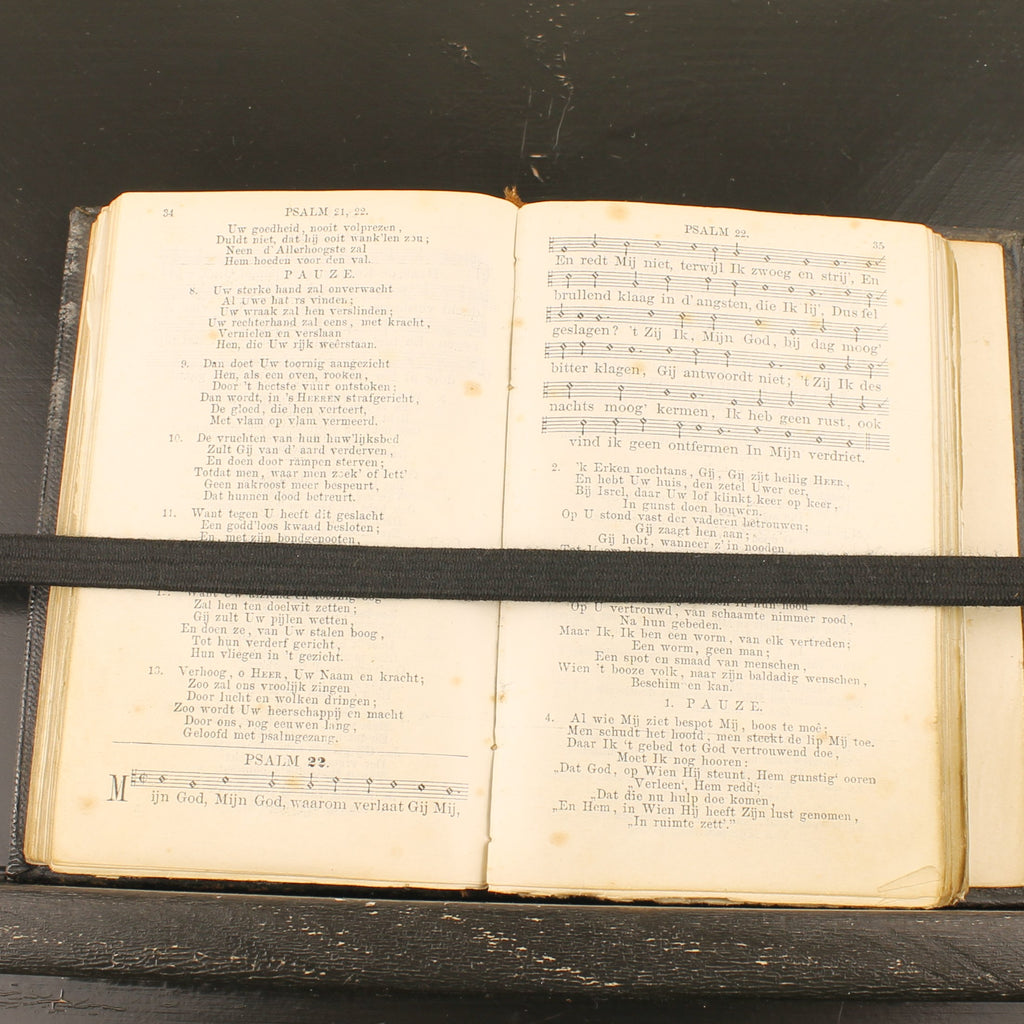 34
PSALM 21, 22.
Uw goedheid, nooit volprezen,
Duldt niet, dat hij ooit wank'len zou;
Neen d'Allerhoogste zal
Hem hoeden voor den val.
PAUZE.
8. Uw sterke hand zal onverwacht
Al Uwe haters vinden;
Uw wraak zal hen verslinden;
Uw rechterhand zal eens, met kracht,
Vernielen en verslaan
Hen, die Uw rijk weêrstaan.
9. Dan doet Uw toornig aangezicht
Hen, als een oven, rooken,
Door 't heetste vuur ontstoken;
Dan wordt, in 's HEEREN strafgericht,
De gloed, die hen verteert,
Met vlam op vlam vermeerd.
10. De vruchten van hun huw'lijksbed
Zult Gij van d' aard verderven,
En doen door rampen sterven;
Totdat men, waar men zoek' of lett'
Geen nakroost meer bespeurt,
Dat hunnen dood betreurt.
11. Want tegen U heeft dit geslacht
Een godd'loos kwaad besloten;
En, met zijn bondgenooten,
Zal hen ten doelwit zetten;
Gij zult Uw pijlen wetten,
En doen ze, van Uw stalen boog,
Tot hun verderf gericht,
Hun vliegen in 't gezicht.
13. Verhoog, o HEER, Uw Naam en kracht;
Zoo zal ons vroolijk zingen
Door lucht en wolken dringen;
Zoo wordt Uw heerschappij en macht
Door ons, nog eeuwen lang,
Geloofd met psalmgezang.
PSALM 22.
Mijn God, Mijn God, waarom verlaat Gij Mij,
PSALM 22.
35
En redt Mij niet, terwijl Ik zwoeg en strij', En
brullend klaag in d' angsten, die Ik lij', Dus fel
geslagen? 't Zij Ik, Mijn God, bij dag moog'
bitter klagen, Gij antwoordt niet; 't Zij Ik des
nachts moog' kermen, Ik heb geen rust, ook
vind ik geen ontfermen In Mijn verdriet.
2. 'k Erken nochtans, Gij, Gij zijt heilig HEER,
En hebt Uw huis, den zetel Uwer eer,
Bij Isrel, daar Uw lof klinkt keer op keer,
In gunst doen bouwen.
Op U stond vast der vaderen betrouwen;
Gij zaagt hen aan;
Gij hebt, wanneer z' in nooden
in hun nood
Op U vertrouwd, van schaamte nimmer rood,
Na hun gebeden.
Maar Ik, Ik ben een worm, van elk vertreden;
Een worm, geen man;
Een spot en smaad van menschen,
Wien 't booze volk, naar zijn baldadig wenschen,
Beschimpen kan.
1. PAUZE.
4. Al wie Mij ziet bespot Mij, boos te moê;
Men schudt het hoofd, men steekt de lip Mij toe.
Daar Ik 't gebed tot God vertrouwend doe,
Moet Ik nog hooren:
„Dat God, op Wien Hij steunt, Hem gunstig' ooren
„Verleen', Hem redd';
„Dat die nu hulp doe komen,
„En Hem, in Wien Hij heeft Zijn lust genomen,
„In ruimte zett'."